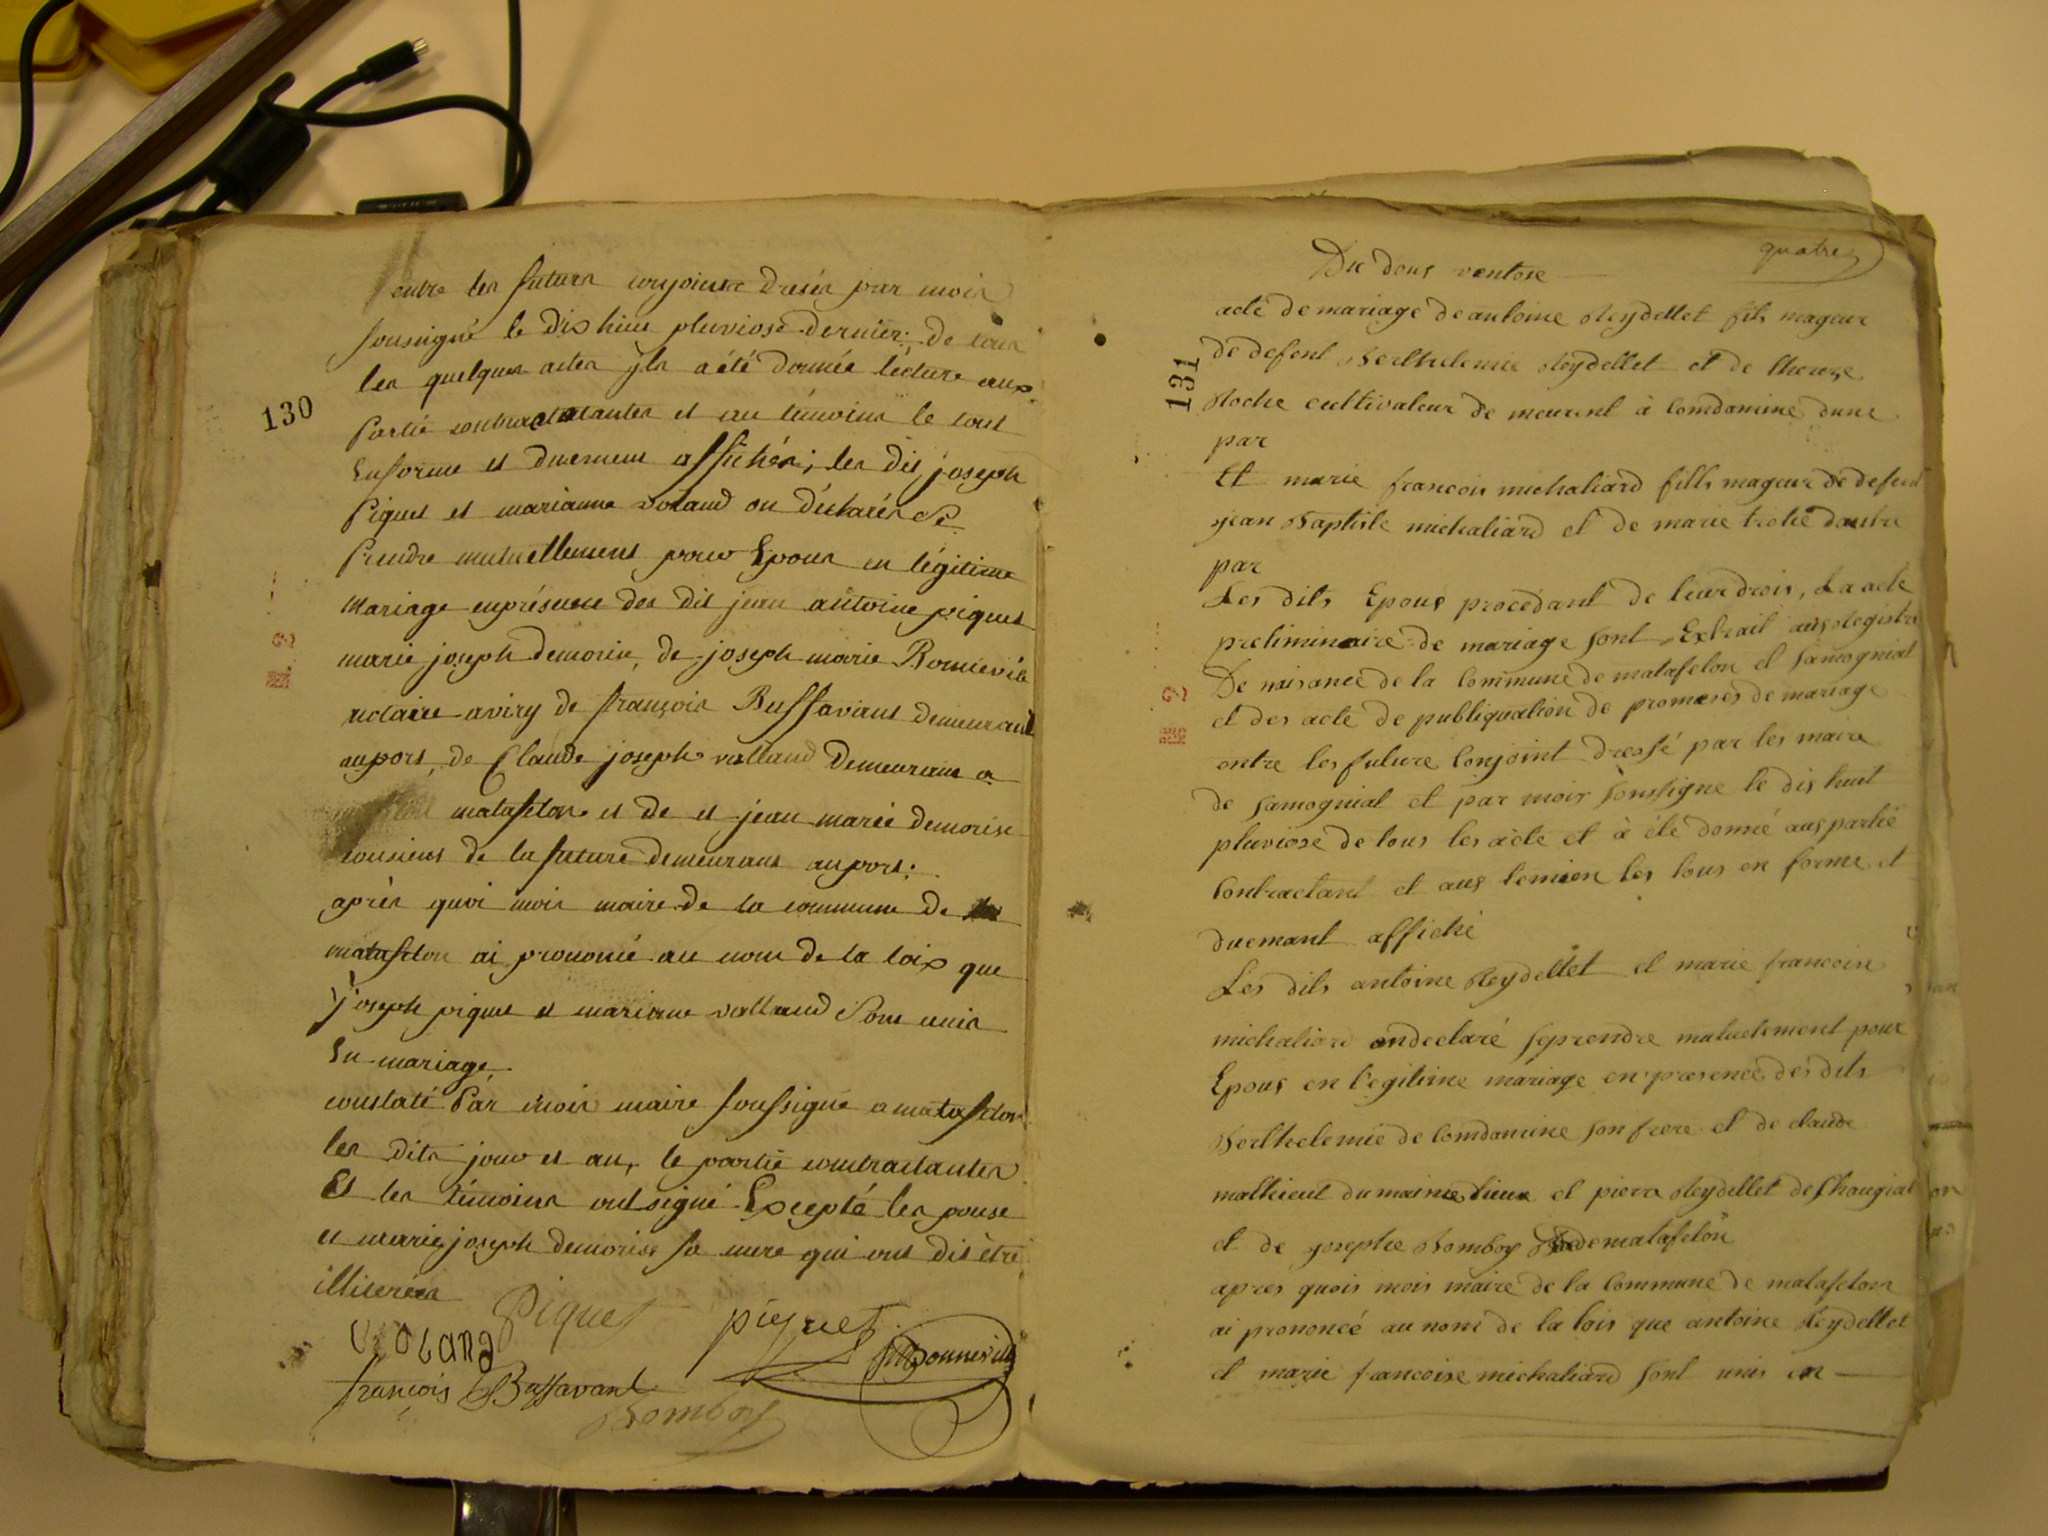 130
entre les futurs conjoinr dresés par moir
soussigné le dix huit pluviose dernier. de tous
les quelques actes yls a été donnée lécture aux
partie contractantes et au témoins le tout
en forme et duement affichés; les dit joseph
piquet et marianne voland on déclarés se
prendre mutuellement pour Epoux en légitime
mariage enprésence des dit jean antoine piquet
marie joseph demorin, de joseph marie Bonnevile
notaire aviry de françois Buffavant demeurant
auport, de Claude joseph volland demeurant a
matafelon et de et jean marie demorise
cousiens de la future demeurant auport;
après quoi moir maire de la commune de
matafelon ai prononcé au nom de la loix que
joseph piquet et mariane volland sont unis
En mariage
constaté Par moir maire soussigné a matafelon
les dits jour et an, le partie contractantes
Et les témoins ont signé Excepté les pouse
et marie joseph demorise sa mere qui ont dit être
illiterées
piquet piquet
voland Bonneville
françois Buffavant
Bomboy
quatre
Du dous ventose
131
acte de mariage de antoine Reydellet fils mageur
de defent Berthelemie Reydellet et de therese
Roche cultivateur de meurent à Comdamine dune
par
Et marie francois michaliard fills mageur de defent
jean Baptiste michaliard et de marie troche dautre
par
Les dits Epoux procedant de leur drois, La acte
preliminaire de mariage sont Extrait aus Registre
De naisance de la Commune de matafelon et Samognial
et des acte de publiqualion de promeses de mariage
entre les future Conjoint dressé par les maire
de Samognial et par moir soussigne le dis huit
pluviose de tous les acte et à été donné aus partié
Contractant et aus temien les tous en forme et
duemant affiché
Les dits antoine Reydellet et marie francoise
michaliard ondeclaré seprendre mutuelement pour
Epous en legitime mariage en presence des dits
Berthelemie de Comdamine son frere et de claude
mathieut du maime lieux et pierre Reydellet de
et de josephe Bomboy de matafelon
apres quois mois maire de la Commune de matafelon
ai prononcé au nom de la lois que antoine Reydellet
et marie francoise michaliard sont unis en